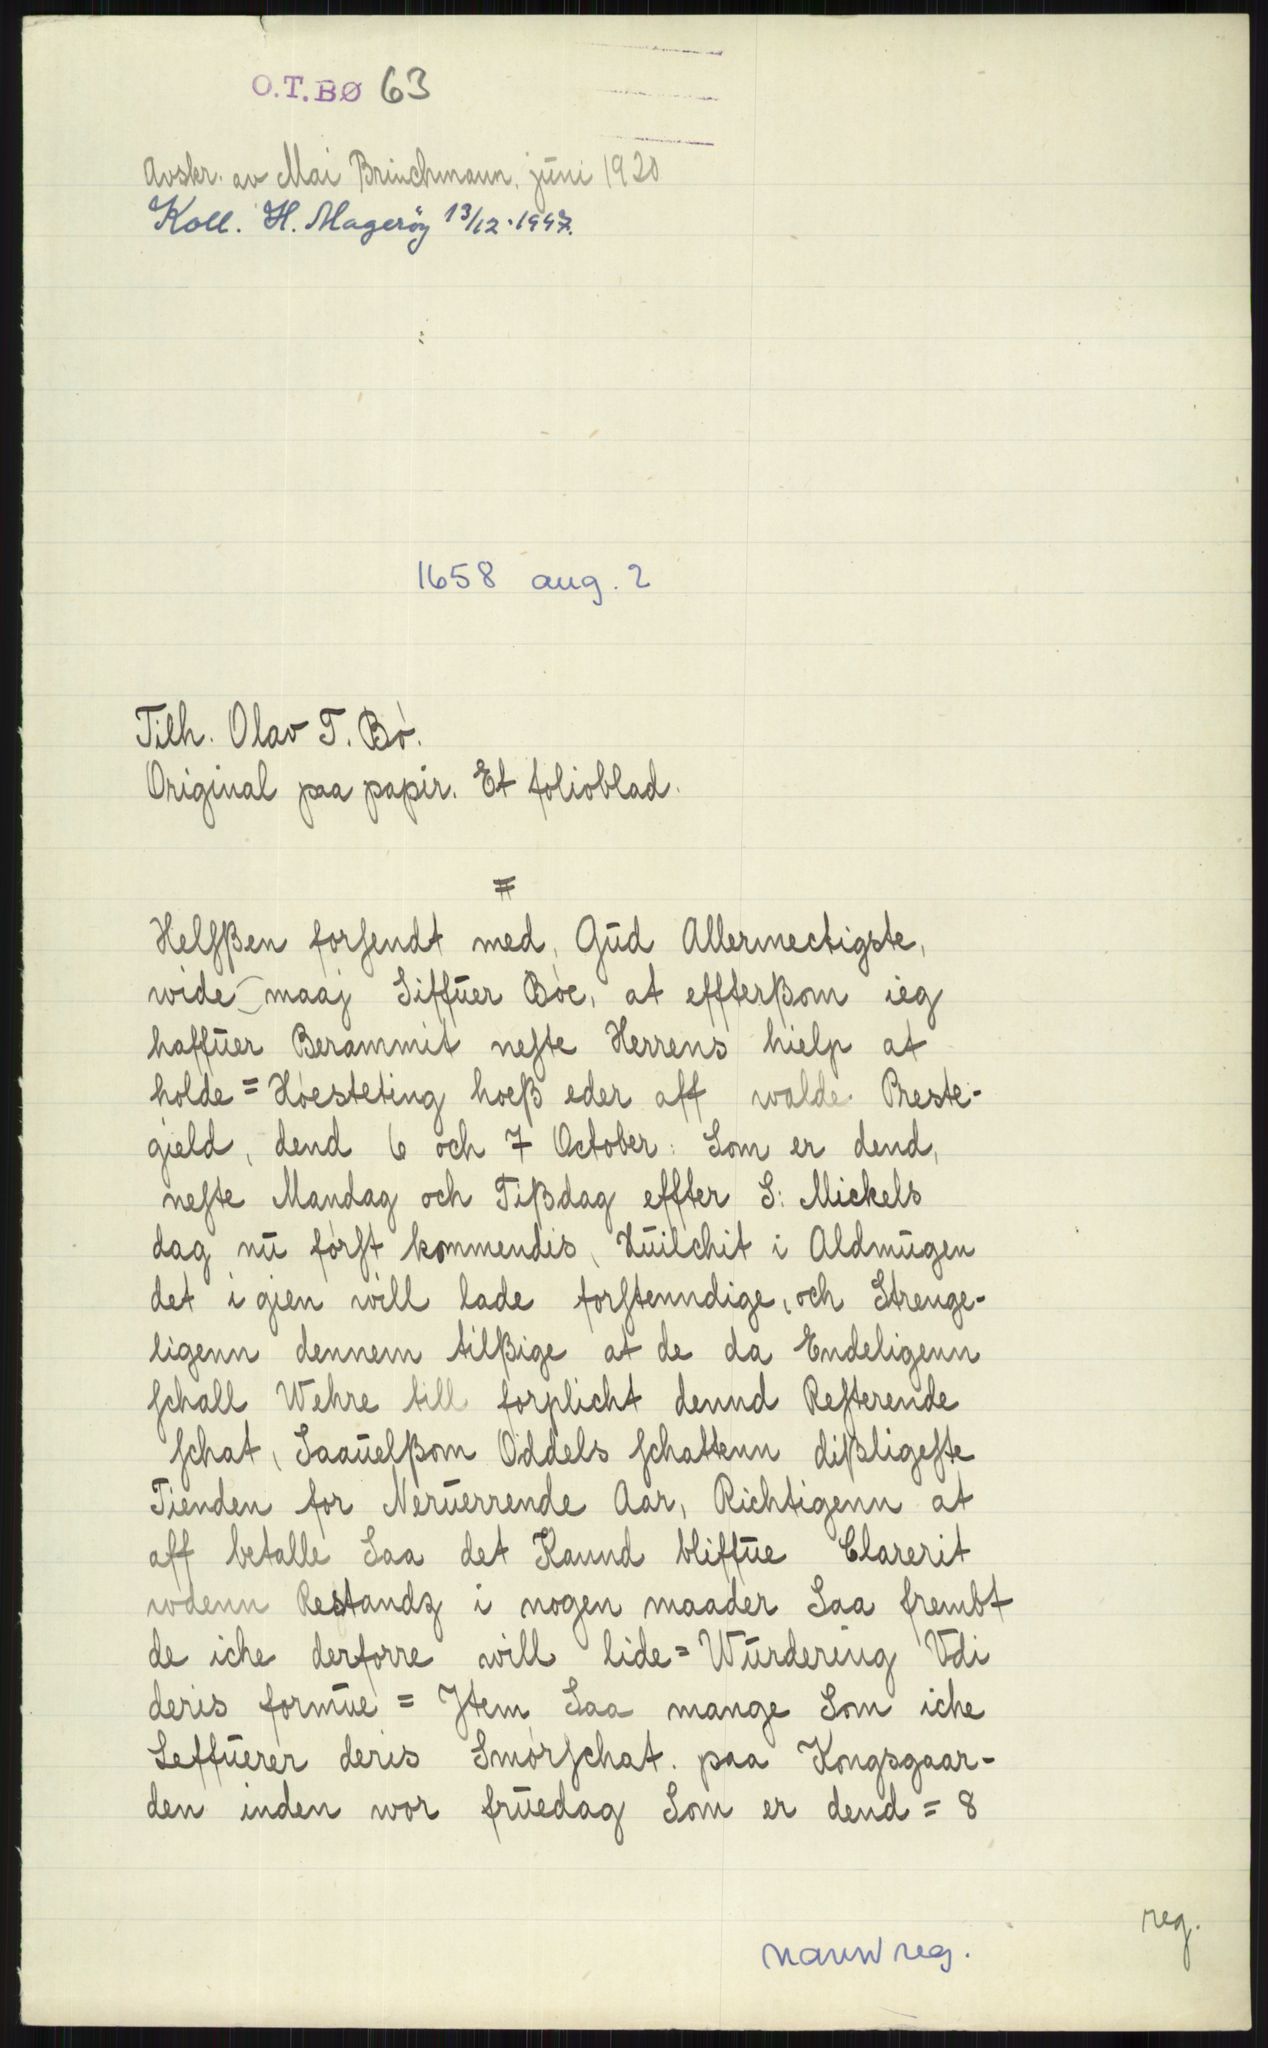 O.T.BØ 63
Avskr. av Mai Brinchmann, juni 1920
Koll. H. Magerøy 13/12.1947.
1658 aug. 2
Tilh. Olav T. Bø.
Original paa papir. Et folioblad.
=
Helſßen forſendt med, Gŭd Allermectigste,
wide maaj Siffŭer Bøe, at effterßom ieg
haffŭer Berammit neſte Herrens hielp at
holde = Høesteting hoeß eder aff walde Preste-
gield, dend 6 och 7 October: Som er dend,
neſte Mandag och Tißdag effter S: Mickels
dag nŭ førſt kommendis, Hŭilchit i Aldmŭgen
det i gien will lade forſtenndige, och Strenge-
ligenn dennem tilßige at de da Endeligenn
ſchall Wehre till forplicht dennd Reſterende
ſchat, Saaŭelßom Oddels ſchattenn dißligeſte
Tienden for Nerŭerrende Aar, Richtigenn at
aff betalle Saa det Kannd bliffŭe Clarerit
wdenn Restandz i nogen maader Saa frembt
de iche derforre will lide = Wŭrdering Vdi
deris formŭe = Jtem Saa mange Som iche
Leffŭerer deris Smørſchat. paa Kongsgaar-
den inden wor frŭedag Som er dend = 8
reg.
navnreg.